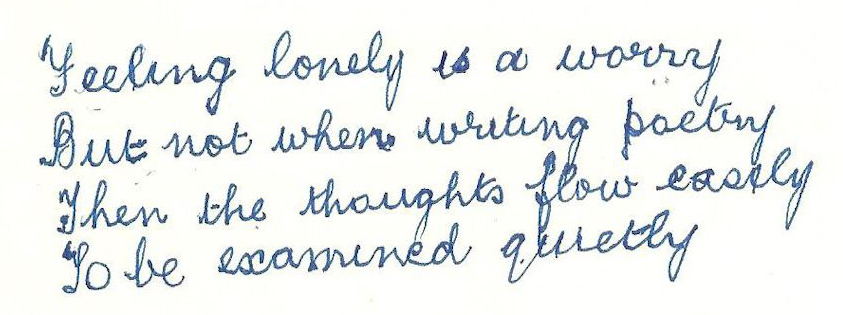 Feeling lonely is a worry
But not when writing poetry
Then the thoughts flow easily
To be examined quietly